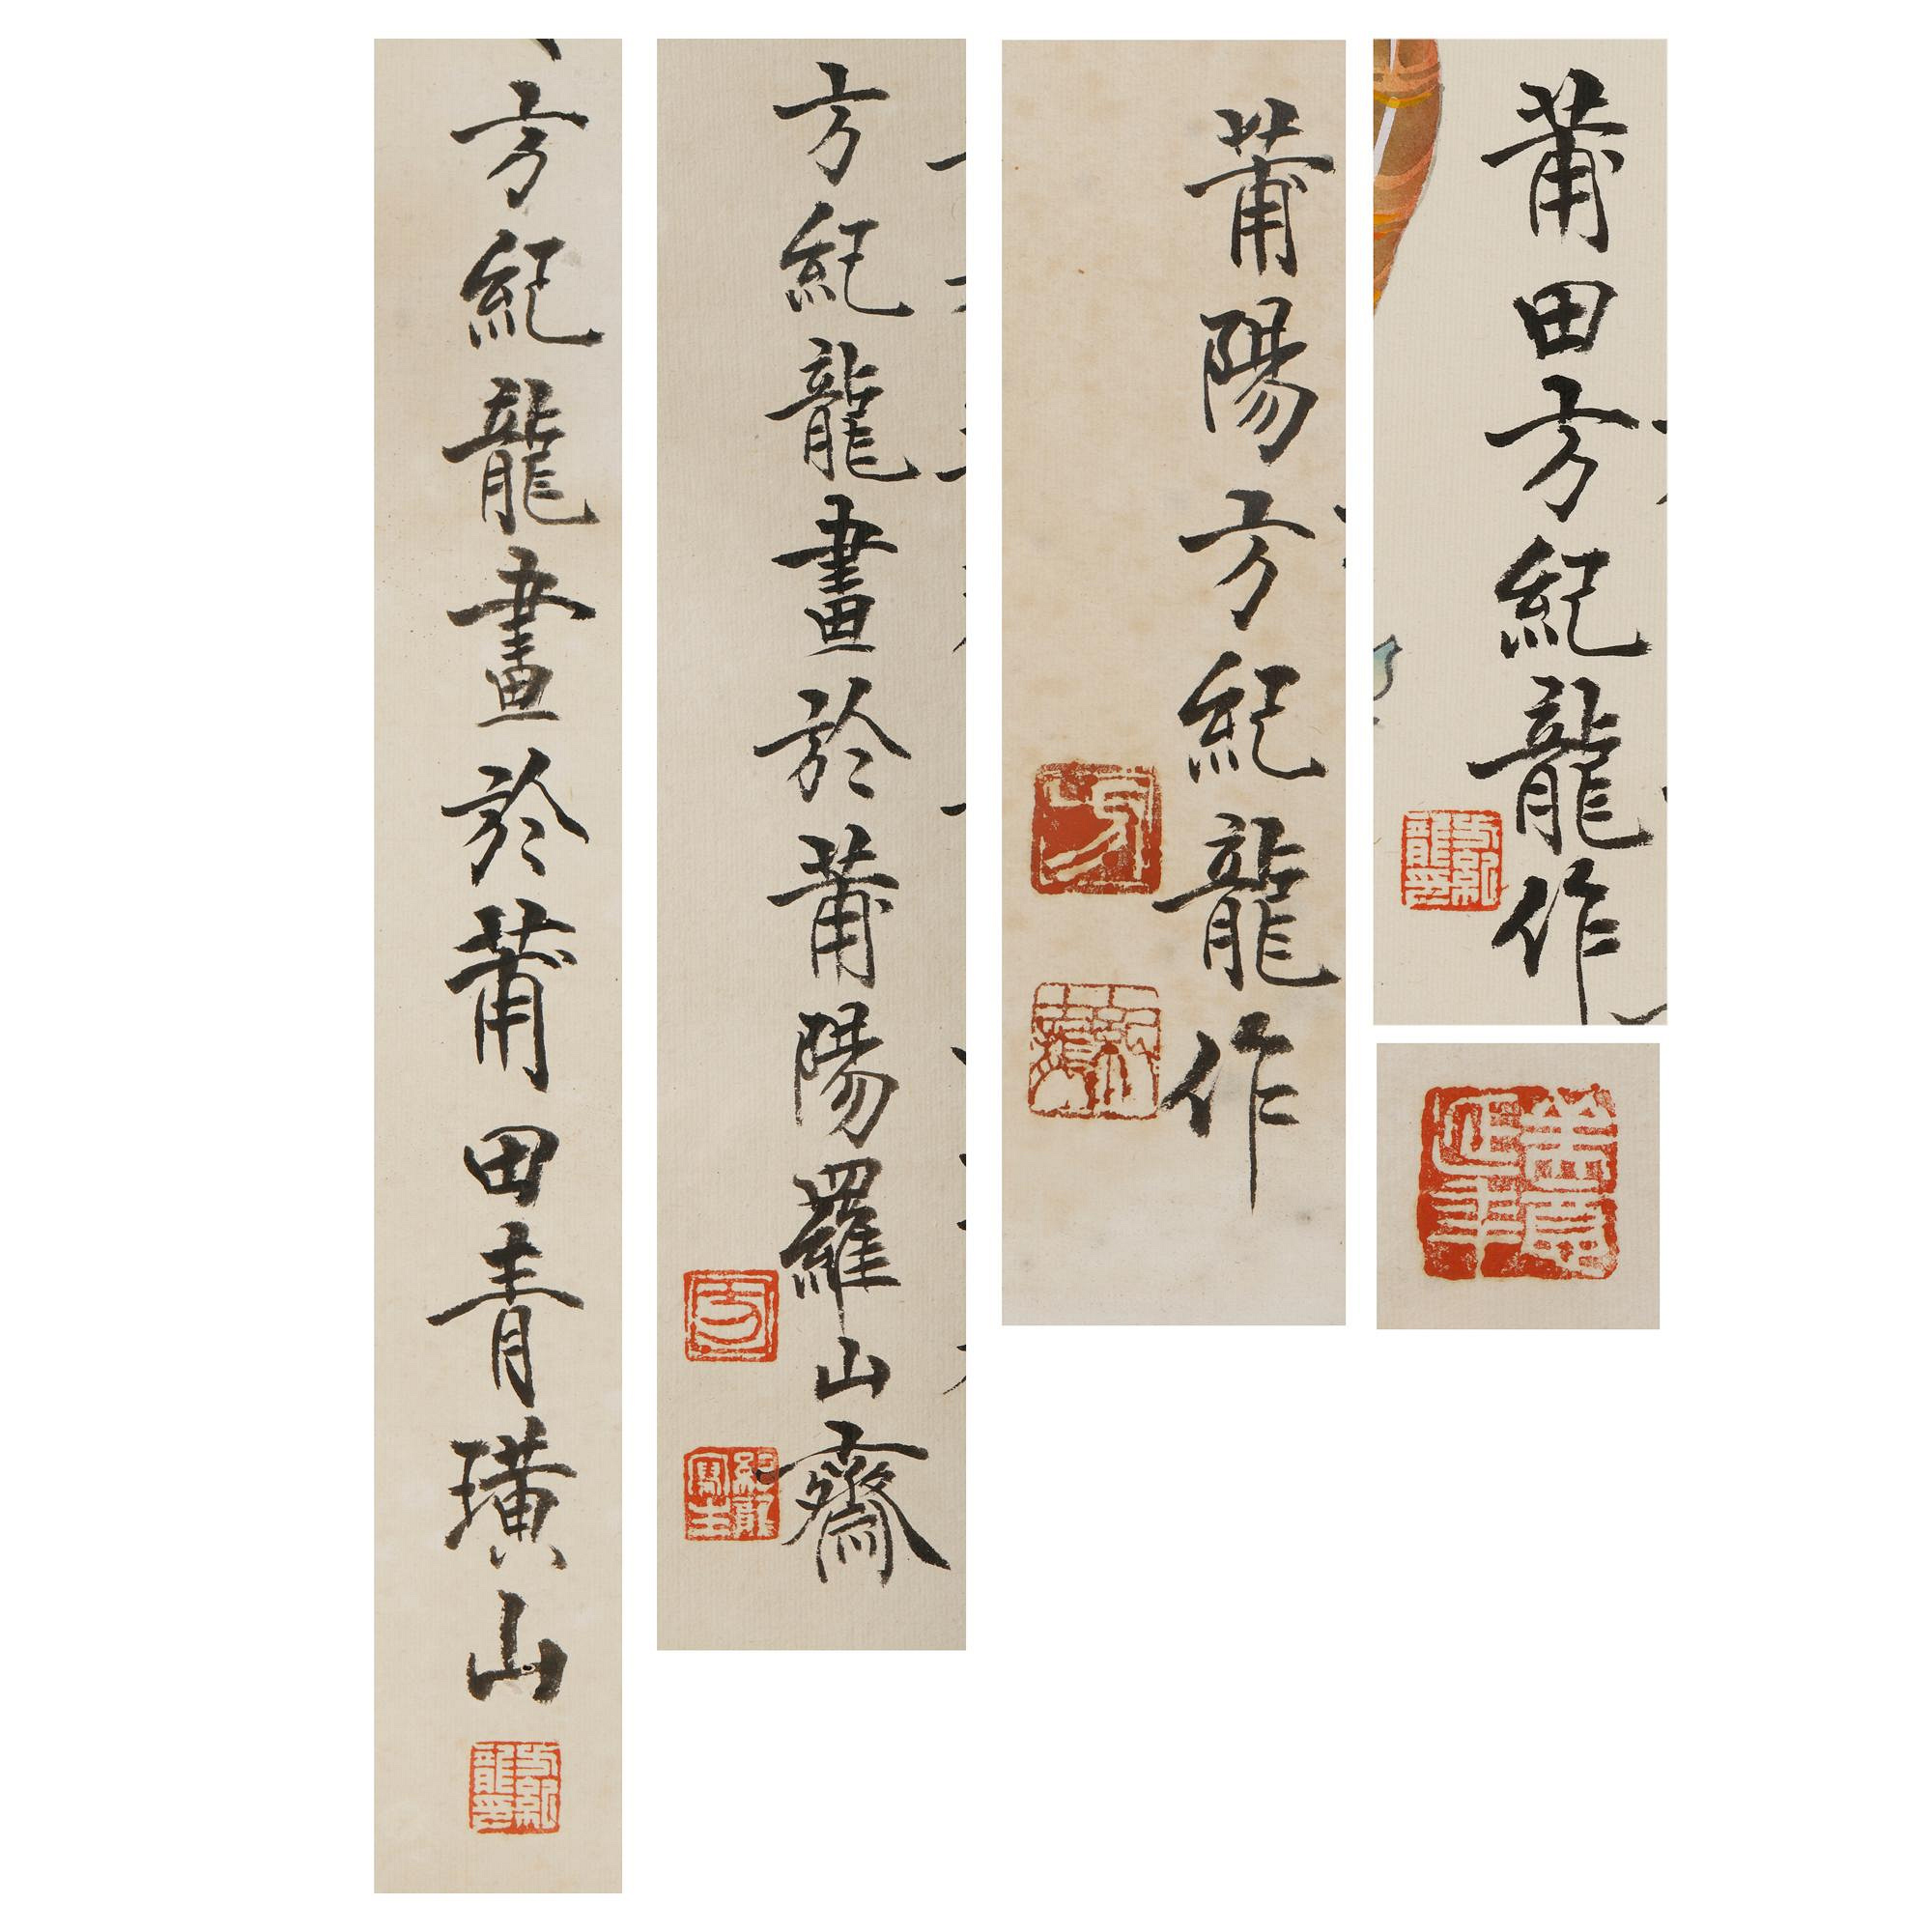 方紀龍畫於莆田青璜山
方紀龍印
方紀龍畫於莆陽羅山齋
莆陽方紀龍作
方
紀龍
莆田方紀龍作
方紀龍印
益壽延年